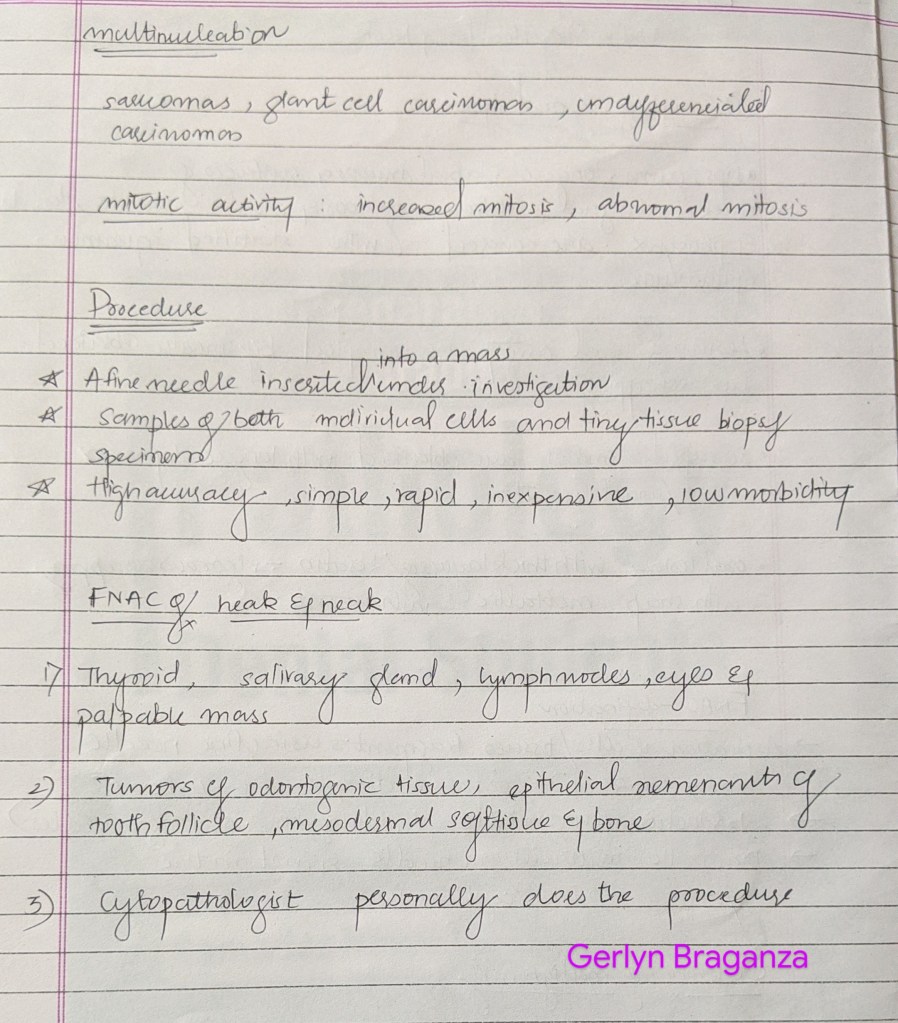 multinucleation
sarcomas, giant cell carcinomas, undifferenciated
carcinomas
mitotic activity : increased mitosis, abnormal mitosis
Procedure
into a mass
☆ A fine needle inserted under investigation
☆ samples of both individual cells and tiny tissue biopsy
specimens
☆ High accuracy, simple, rapid, inexpensive, low morbidity
FNAC of heak & neak
1) Thyroid, salivary gland, lymphnodes, eyes &
palpable mass
2) Tumors of odontogenic tissue, epithelial of
tooth follicle, mesodermal soft tissue & bone
3) Cytopathologist personally does the procedure
Gerlyn Braganza